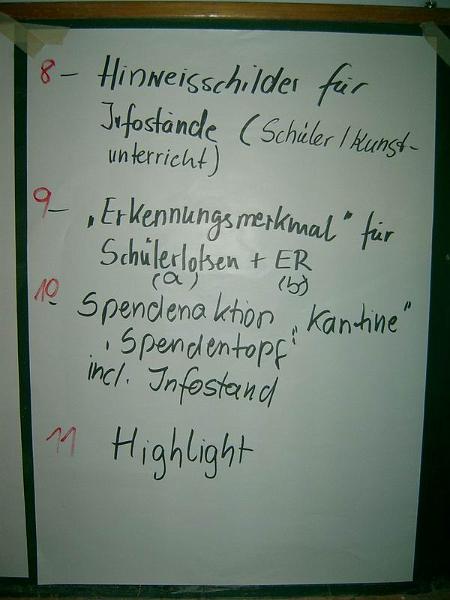 8 – Hinweisschilder für
Infostände (Schüler/Kunst-
unterricht)
9 – „Erkennungsmerkmal" für
Schülerlotsen + ER
(a) (b)
10 - Spendenaktion „Kantine"
, Spendentopf"
incl. Infostand
11 Highlight